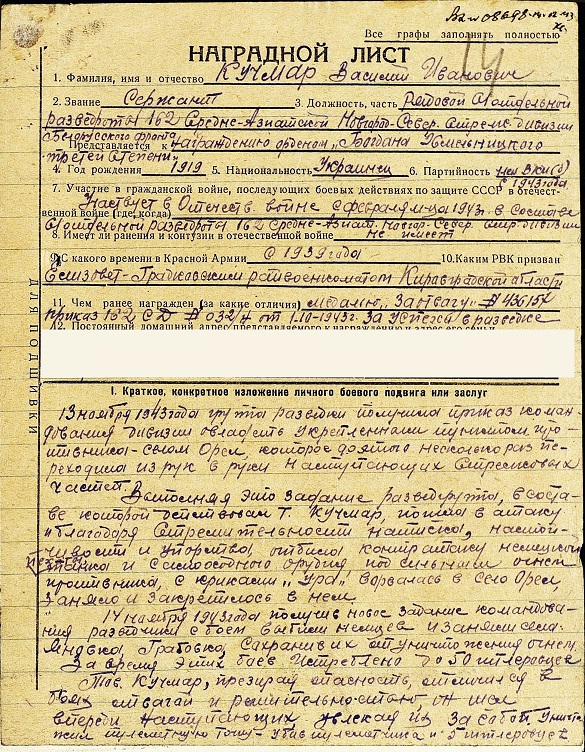 Все графы заполнять полностью
НАГРАДНОЙ ЛИСТ
1. Фамилия, имя и отчество Кучмар Василий Иванович
2. Звание Сержант 3. Должность, часть Рядовой отдельной
разведроты 162 Средне-Азиатской Новгород-Север. стрелк. дивизии
Белорусского фронта
Представляется к награждению орденом „Богдана Хмельницкого
третей степени"
4. Год рождения 1919 5. Национальность Украинец 6. Партийность чл. ВКП(б)
с 1943 года
7. Участие в гражданской войне, последующих боевых действиях по защите СССР в отечест-
венной войне (где, когда) Участвует в Отечеств войне с февраля м-ца 1943 г. в составе
отдельной разведроты 162 Средне-Азиат. Новгор-Север. стр. дивизии
8. Имеет ли ранения и контузии в отечественной войне не имеет
9. С какого времени в Красной Армии с 1939 года 10. Каким РВК призван
Елизовет-Градковским райвоенкоматом Кировградской области
11. Чем ранее награжден (за какие отличия) медалью „За отвагу" № 436157
приказ 162 СД № 032/н от 1.10-1943 г. За успехи в разведке
12. Постоянный домашний адрес представляемого к награждению и адрес его семьи
ДЛЯ ПОДШИВКИ
I. Краткое, конкретное изложение личного боевого подвига или заслуг
13 ноября 1943 года группа разведки получила приказ коман-
дования дивизии овладеть укрепленным пунктом про-
тивника - селом Орел, которое до этого несколько раз пе-
реходило из рук в руки наступающих стрелковых
частей.
Выполняя это задание разведгруппа, в соста-
ве которой действовал т. Кучмар, пошла в атаку
и благодаря стремительности натиска, настой-
чивости и упорства, отбила контратаку немецкой
пехоты и самоходного орудия, под сильным огнем
противника, с криками „Ура" ворвалась в село Орел,
заняло и закрепилось в нем.
14 ноября 1943 года получив новое задание командова-
ния разведчики с боем выбили немцев и заняли села
Яновка, Грабовка, сохранив их от уничтожения огнем.
За время этих боев истреблено до 50 гитлеровцев
Тов. Кучмар, презирая опасность, отличился в
боях отвагой и решительностью, он шел
впереди наступающих увлекая их за собой. Уничто-
жил пулеметную точку - убив пулеметчика и 5 гитлеровцев